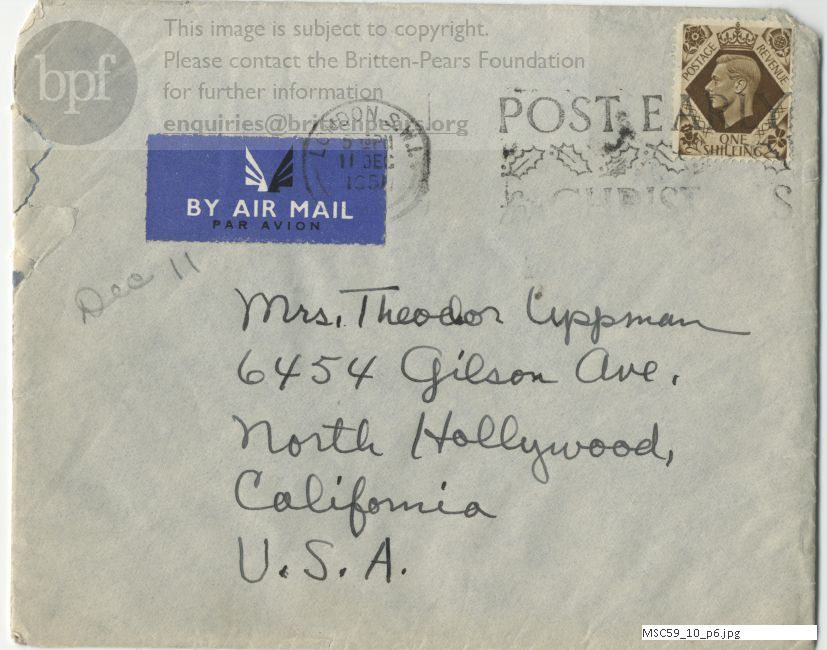 This image is subject to copyright.
Please contact the Britten-Pears Foundation
for further information
enquiries@brittenpears.org
bpf
POSTAGE REVENUE
ONE SHILLING
LONDON S.W.1.
11 DEC
1951
POST EARLY
BY AIR MAIL
PAR AVION
Dec 11
Mrs. Theodor Uppman
6454 Gilson Ave.
North Hollywood,
California
U.S.A.
MSC59_10_p6.jpg